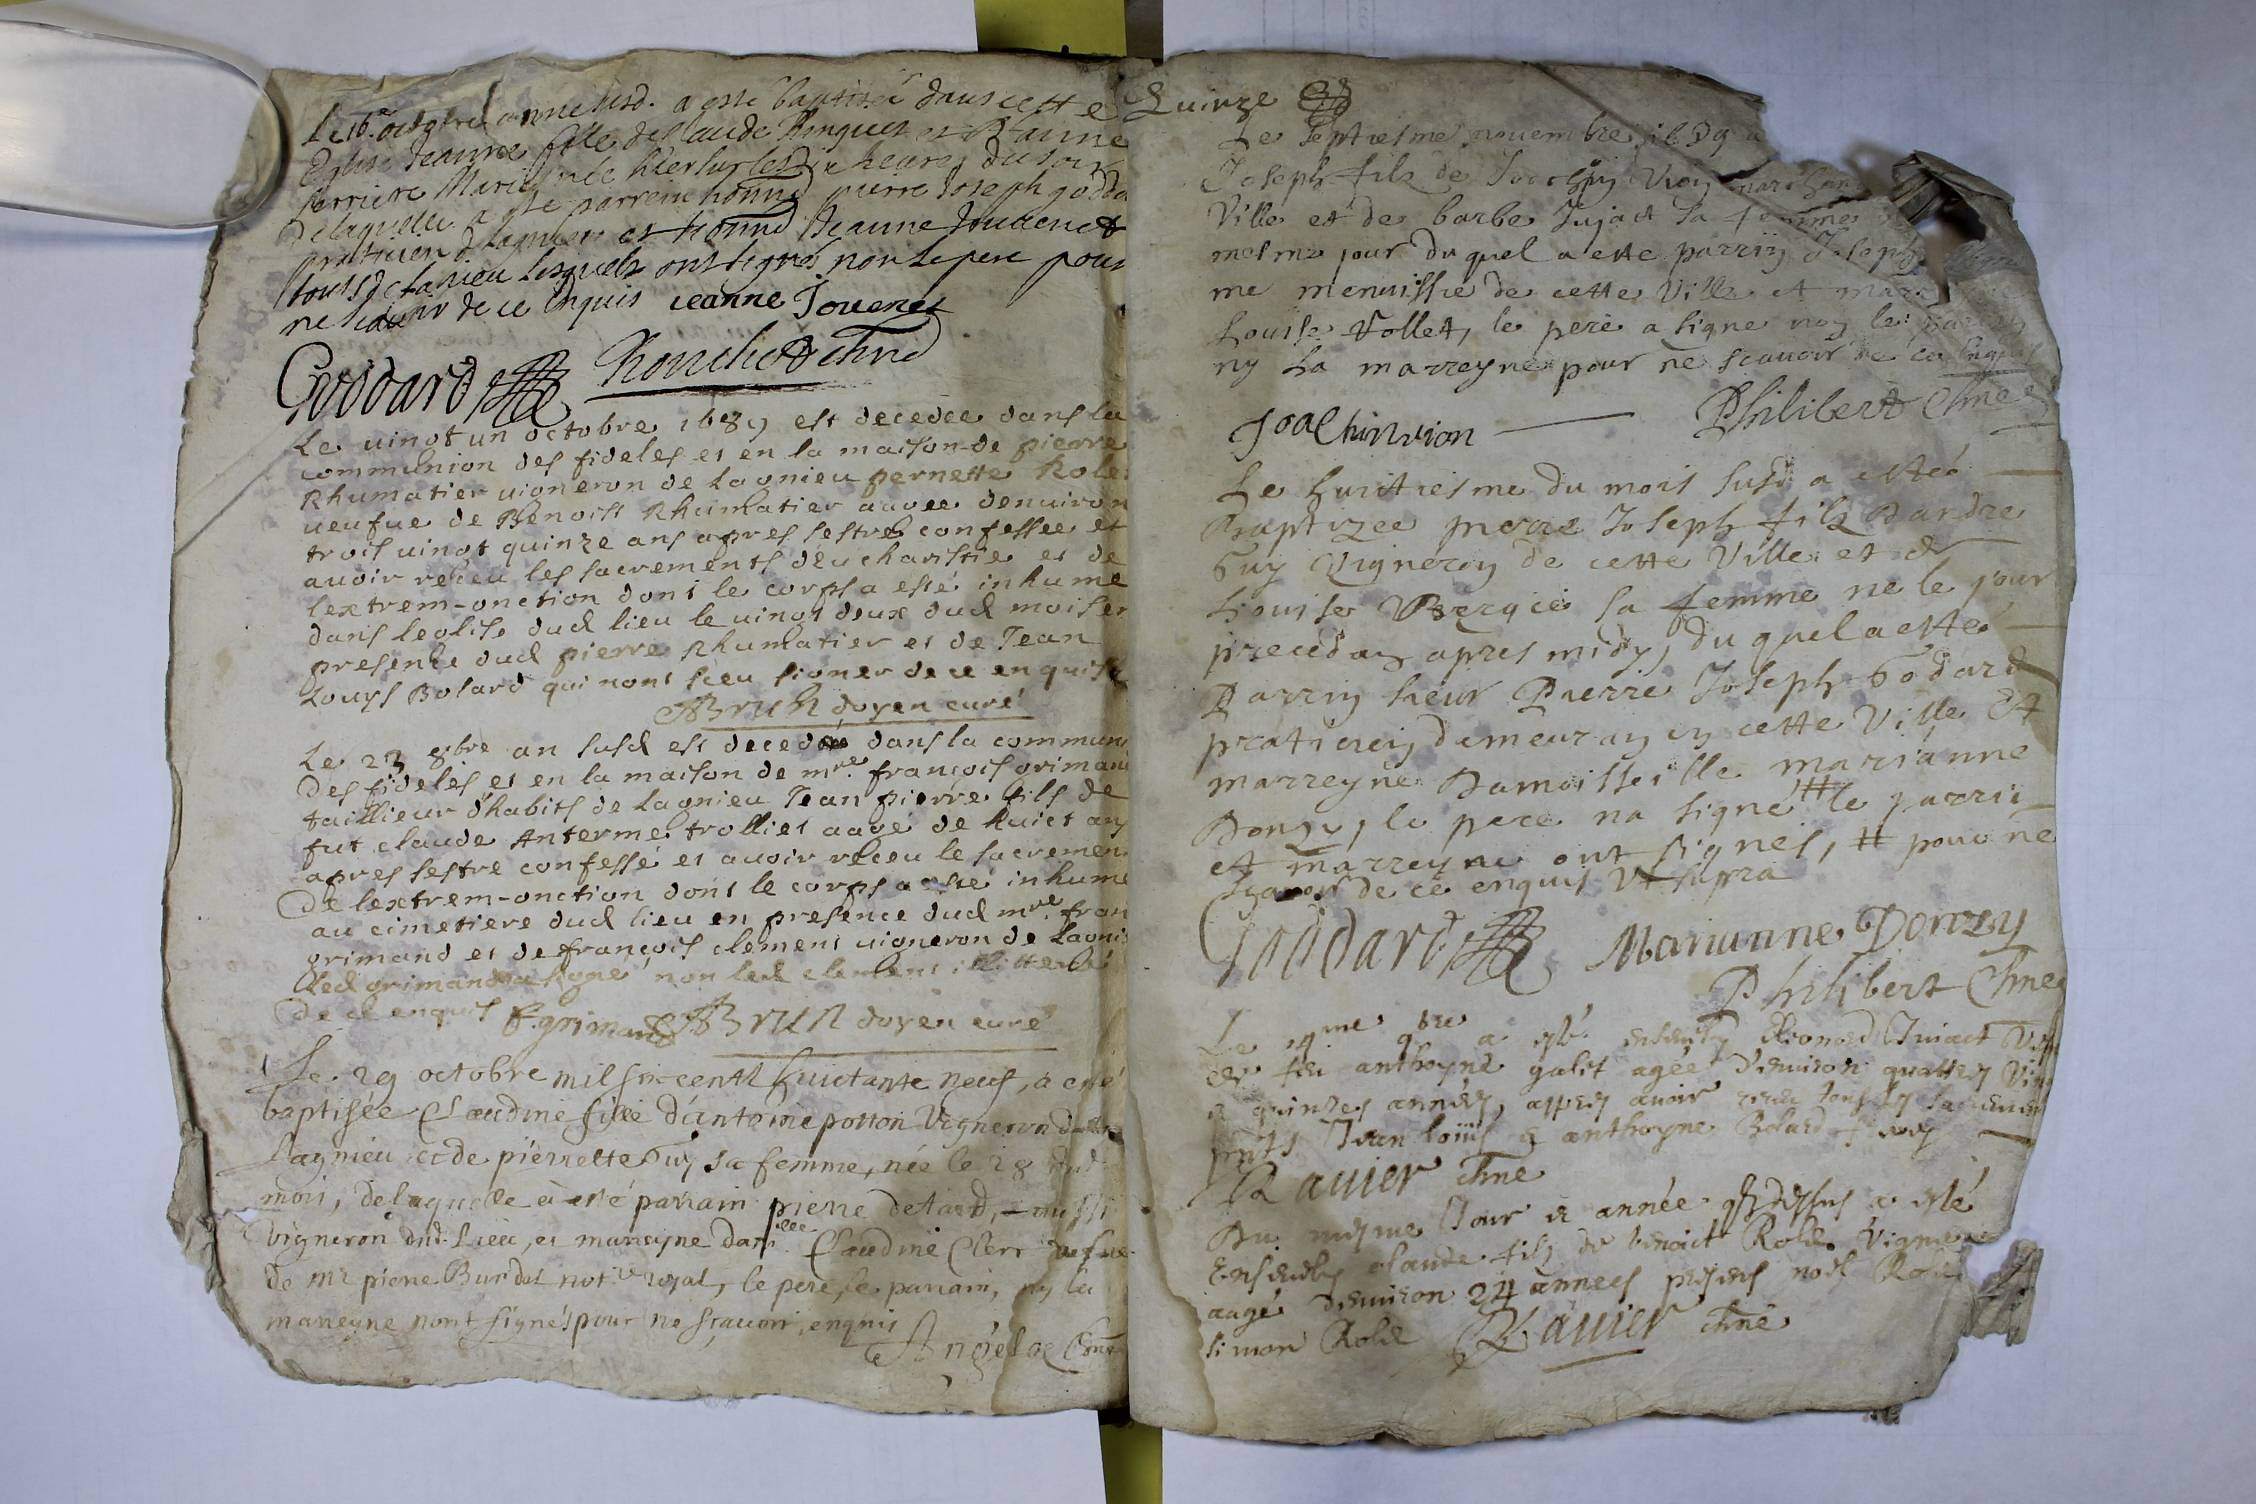 Le 16e octobre annee susd. a esté baptisée dans cette
Eglise Jeanne fille de Claude
ferriere Mariés née hier sur les dix heures du soir
De laquelle a esté parrein honnd pierre Joseph godda
praticien d lagnieu et honnd Jeanne Jouuenet
tous d Lagnieu lesquels ont signés non le pere pour
ne scauoir de ce enquis Jeanne Jouenet
Goddard
Le uingt un octobre 1689 est decedee dans la
communion des fideles et en la maison de pierre
Rhumatier uigneron de Lagnieu pernette Role
ueufue de Benoist Rhumatier agee denuiron
trois uingt quinze ans apres sestre confessee et
auoir receu les sacrements deucharistie et de
lextrem-onction dont le corps a esté inhume
dans leglise dud lieu le uingt deux dud mois en
presence dud pierre Rhumatier et de Jean
Louys Bolard qui nont sceu signer de ce enquis
Brun doyen curé
Le 23 8bre an susd est decedé dans la commun
Des fideles et en la maison de mre françois griman
taillieur d'habits de Lagnieu Jean pierre fils de
fut claude Anterme trolliet aagé de huict ans
apres sestre confessé et auoir receu le sacremen
De lextrem-onction dont le corps a esté inhume
au cimetiere dud lieu en presence dud mre fran
grimand et de françois clement uigneron de Lagni
Led grimand a signé non led clement illitteré
De ce enquis F. grimand Brun doyen curé
Le 29 octobre mil six cents huictante neuf, a esté
baptisée Claudine fille d'antoine potton Vigneron de
Lagnieu et de pierrette Guy sa femme, née le 28 dud
mois, de laquelle a esté parrain pierre detard, aussi
Vigneron dud. Lieu, et marreyne damlle Claudine Clerc vefue
de Mr pierre Burdel notre royal, le pere, le parrain, ny la
marreyne nont signés pour ne sçauoir, enquis
Quinze
Le septiesme nouembre
Joseph fils de Joachin Vion marchan
Ville et de barbe Jujat sa femme
mesme jour du quel a este parrin Joseph
me menuissie de cette Ville et marr
Louise Vollet, le pere a signe non le parrin
ny La marreyne pour ne scauoir de ce enquis
Joachin vion Philibert
Le huitiesme du mois susd a esté
Baptizee pierre Joseph filz Dandre
Guy Vigneron de cette Ville et de
Louise sa femme ne le jour
precedan apres midy, du quel a esté
Parrin sieur Pierre Joseph Godard
praticien demeuran en cette Ville Et
marreyne Damoisselle marianne
Donzy, le pere na signé # le parrin
et marreyne ont signés, # pour ne
sçauoir de ce enquis Vt supra
Goddard Marianne Donzy
Philibert
Le 9bre a esté
feu anthoyne galit agée denuiron quattre vin
quinzes années, apres auoir receu tous les sacremen
pnts Jean loüis & anthoyne Bolard
Rauier
Du mesme Jour et année a esté
claude fils de benoict Role Vigne
aagé denuiron 24 annees presens noel Role
simon Role Rauier